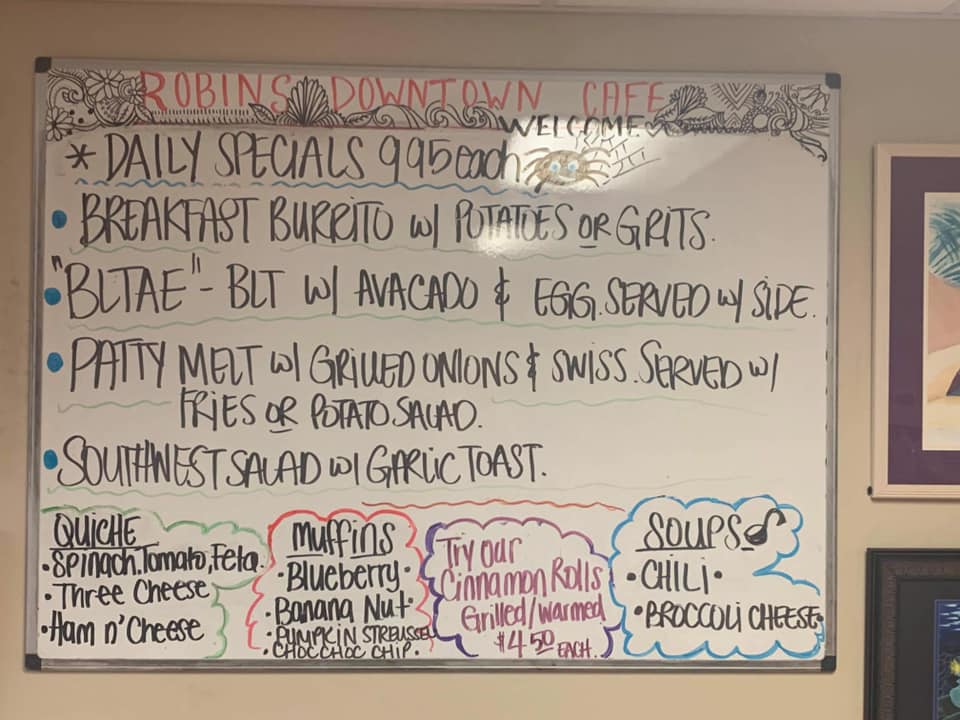 ROBINS DOWNTOWN CAFE
WELCOME
* DAILY SPECIALS 995 each
• BREAKFAST BURRITO w/ POTATOES OR GRITS.
• "BLTAE" - BLT w/ AVACADO & EGG. SERVED w/ SIDE.
• PATTY MELT w/ GRILLED ONIONS & SWISS. SERVED w/
FRIES OR POTATO SALAD.
• SOUTHWEST SALAD w/ GARLIC TOAST.
QUICHE
• Spinach, Tomato, Feta.
• Three Cheese
• Ham n' Cheese
Muffins
• Blueberry •
• Banana Nut •
• PUMPKIN STREUSSEL
• CHOC CHOC CHIP •
Try our
Cinnamon Rolls
Grilled/Warmed
$4.50 EACH.
SOUPS
• CHILI •
• BROCCOLI CHEESE •